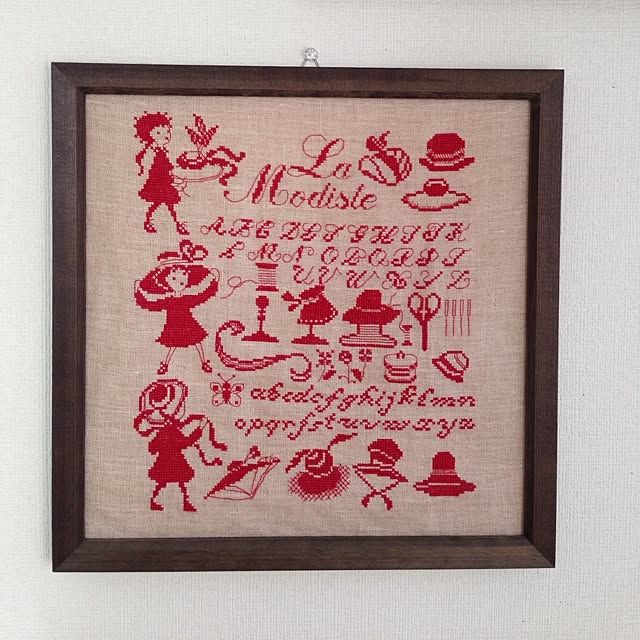 La
Modiste
A B C D E F G H I J K
L M N O P Q R S T
U V W X Y Z
abcdefghijklmn
opqrstuvwxyz